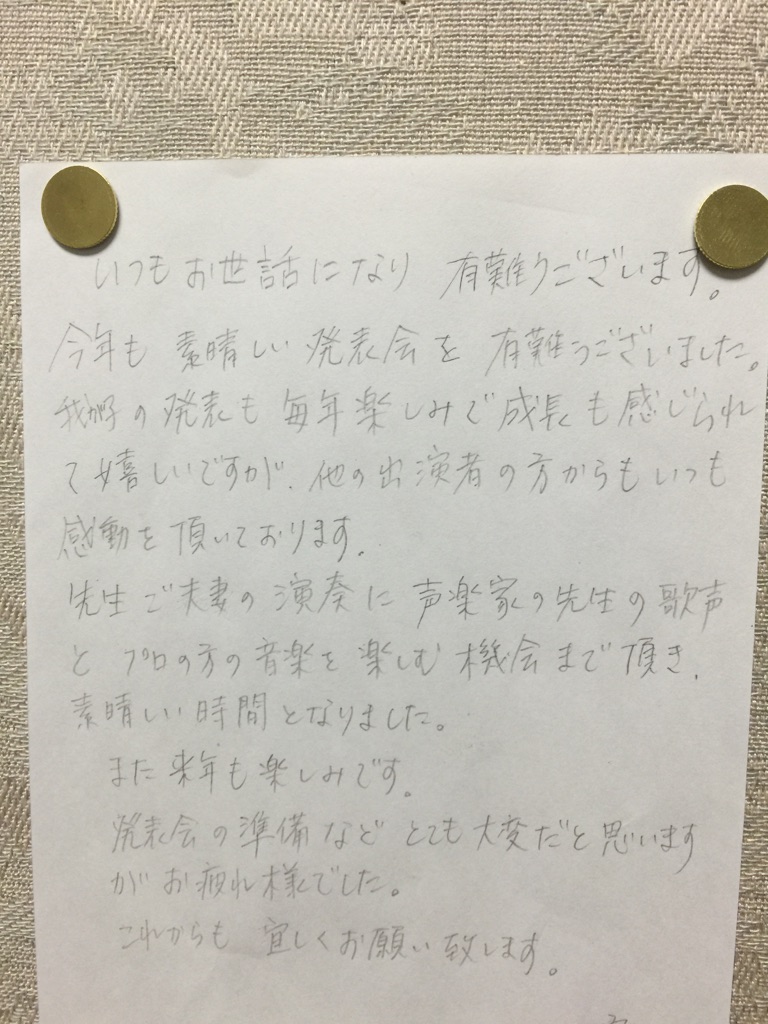 いつもお世話になり 有難うございます。
今年も 素晴しい 発表会を 有難うございました。
我が子の発表も 毎年楽しみで 成長も感じられ
て嬉しいですが、他の出演者の方からもいつも
感動を頂いております。
先生ご夫妻の演奏に 声楽家の先生の歌声
と プロの方の音楽を楽しむ機会まで頂き、
素晴しい時間となりました。
また来年も楽しみです。
発表会の準備など とても大変だと思います
がお疲れ様でした。
これからも 宜しくお願い致します。